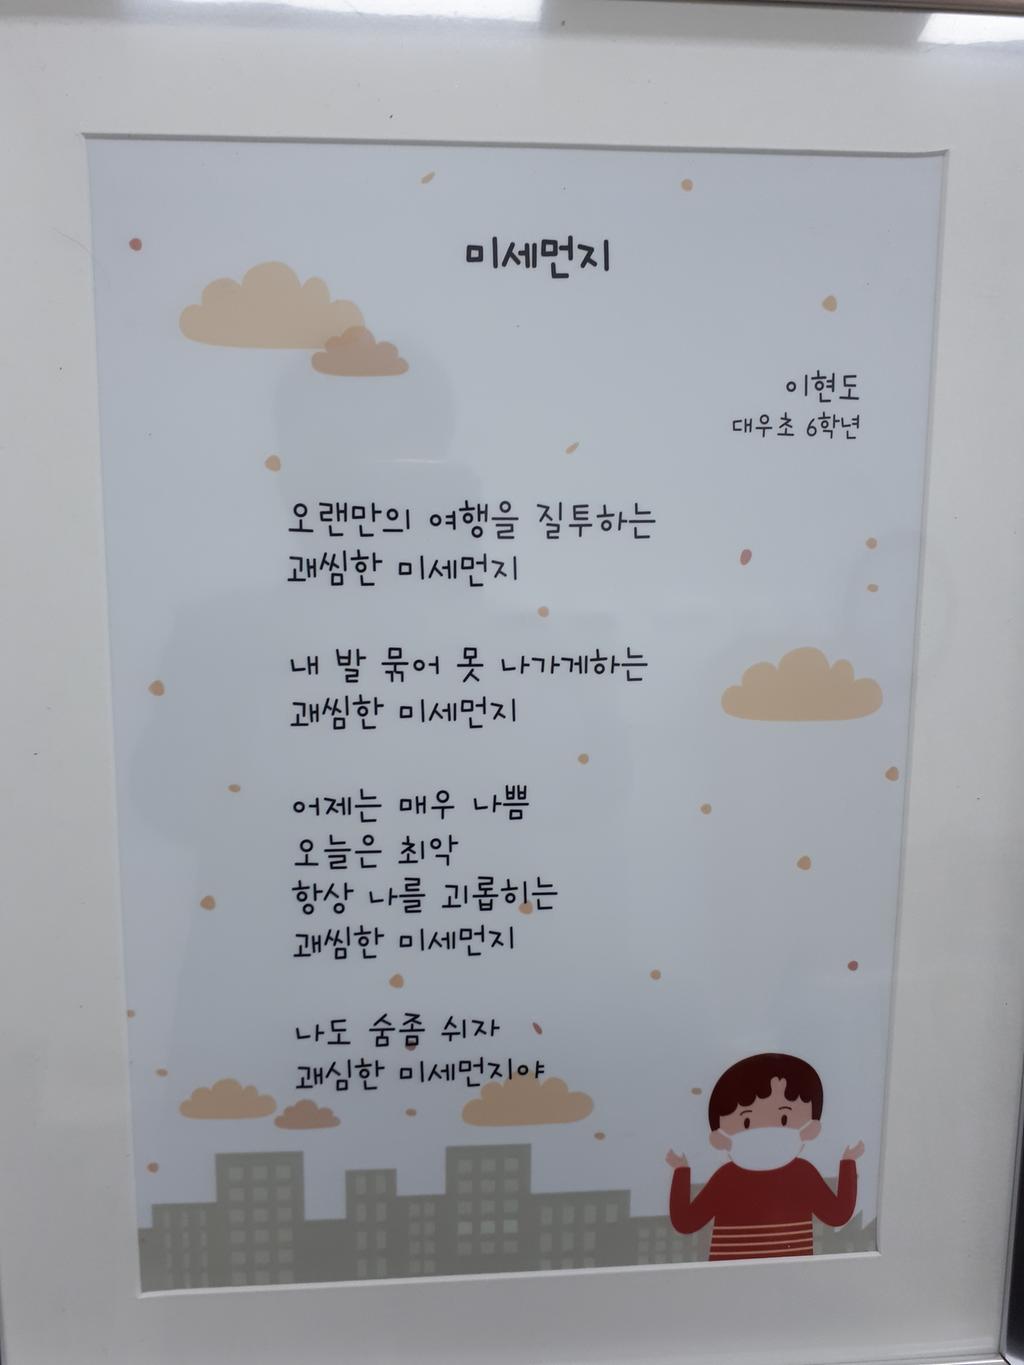 미세먼지
이현도
대우초 6학년
오랜만의 여행을 질투하는
괘씸한 미세먼지
내 발 묶어 못 나가게하는
괘씸한 미세먼지
어제는 매우 나쁨
오늘은 최악
항상 나를 괴롭히는
괘씸한 미세먼지
나도 숨좀 쉬자
괘심한 미세먼지야